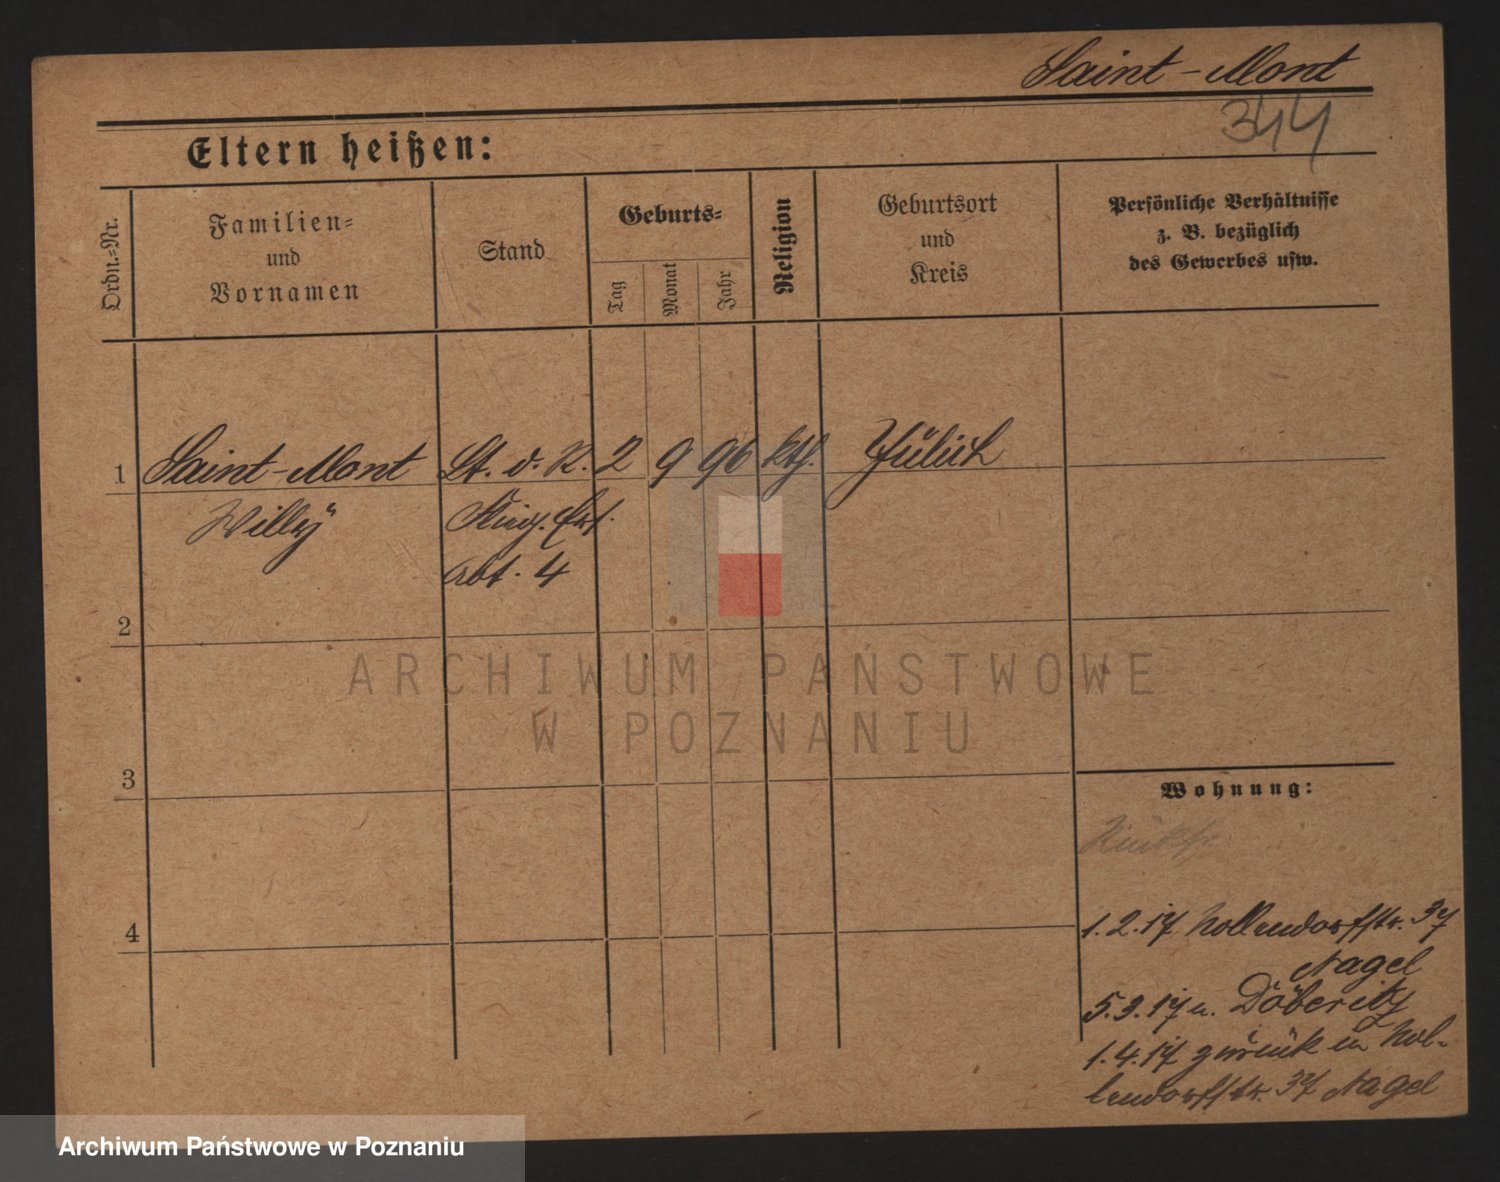 Saint-Mont
344
Eltern heißen:
Ordn.-Nr.
Familien-
und
Vornamen
Stand
Geburts-
Tag
Monat
Jahr
Religion
Geburtsort
und
Kreis
Persönliche Verhältnisse
z. B. bezüglich
des Gewerbes usw.
1 Saint-Mont Lt. d. R. 2 9 96 kth. Jülich
Willy Flieg. Ers.
Abt. 4
2
3
4
Wohnung:
1.2.17 Nollendorffstr. 37
Nagel
5.3.17 n. Döberitz
1.4.17 zurück in Nol-
lendorffstr. 37 Nagel
ARCHIWUM PAŃSTWOWE
W POZNANIU
Archiwum Państwowe w Poznaniu